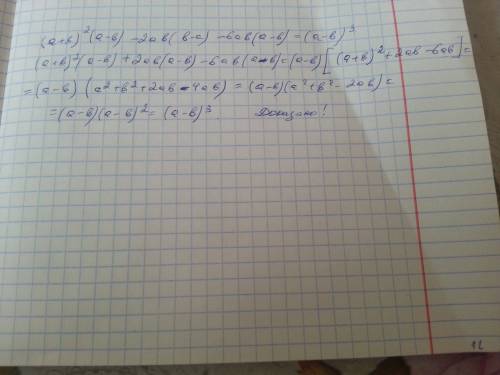 (a+b)²(a-b) -2ab(b-a) -6ab(a-b)=(a-b)³
(a+b)²(a-b)+2ab(a-b)-6ab(a-b)=(a-b)[(a+b)²+2ab-6ab]=
=(a-b)(a²+b²+2ab-4ab)=(a-b)(a²+b²-2ab)=
=(a-b)(a-b)²=(a-b)³ Доказано!